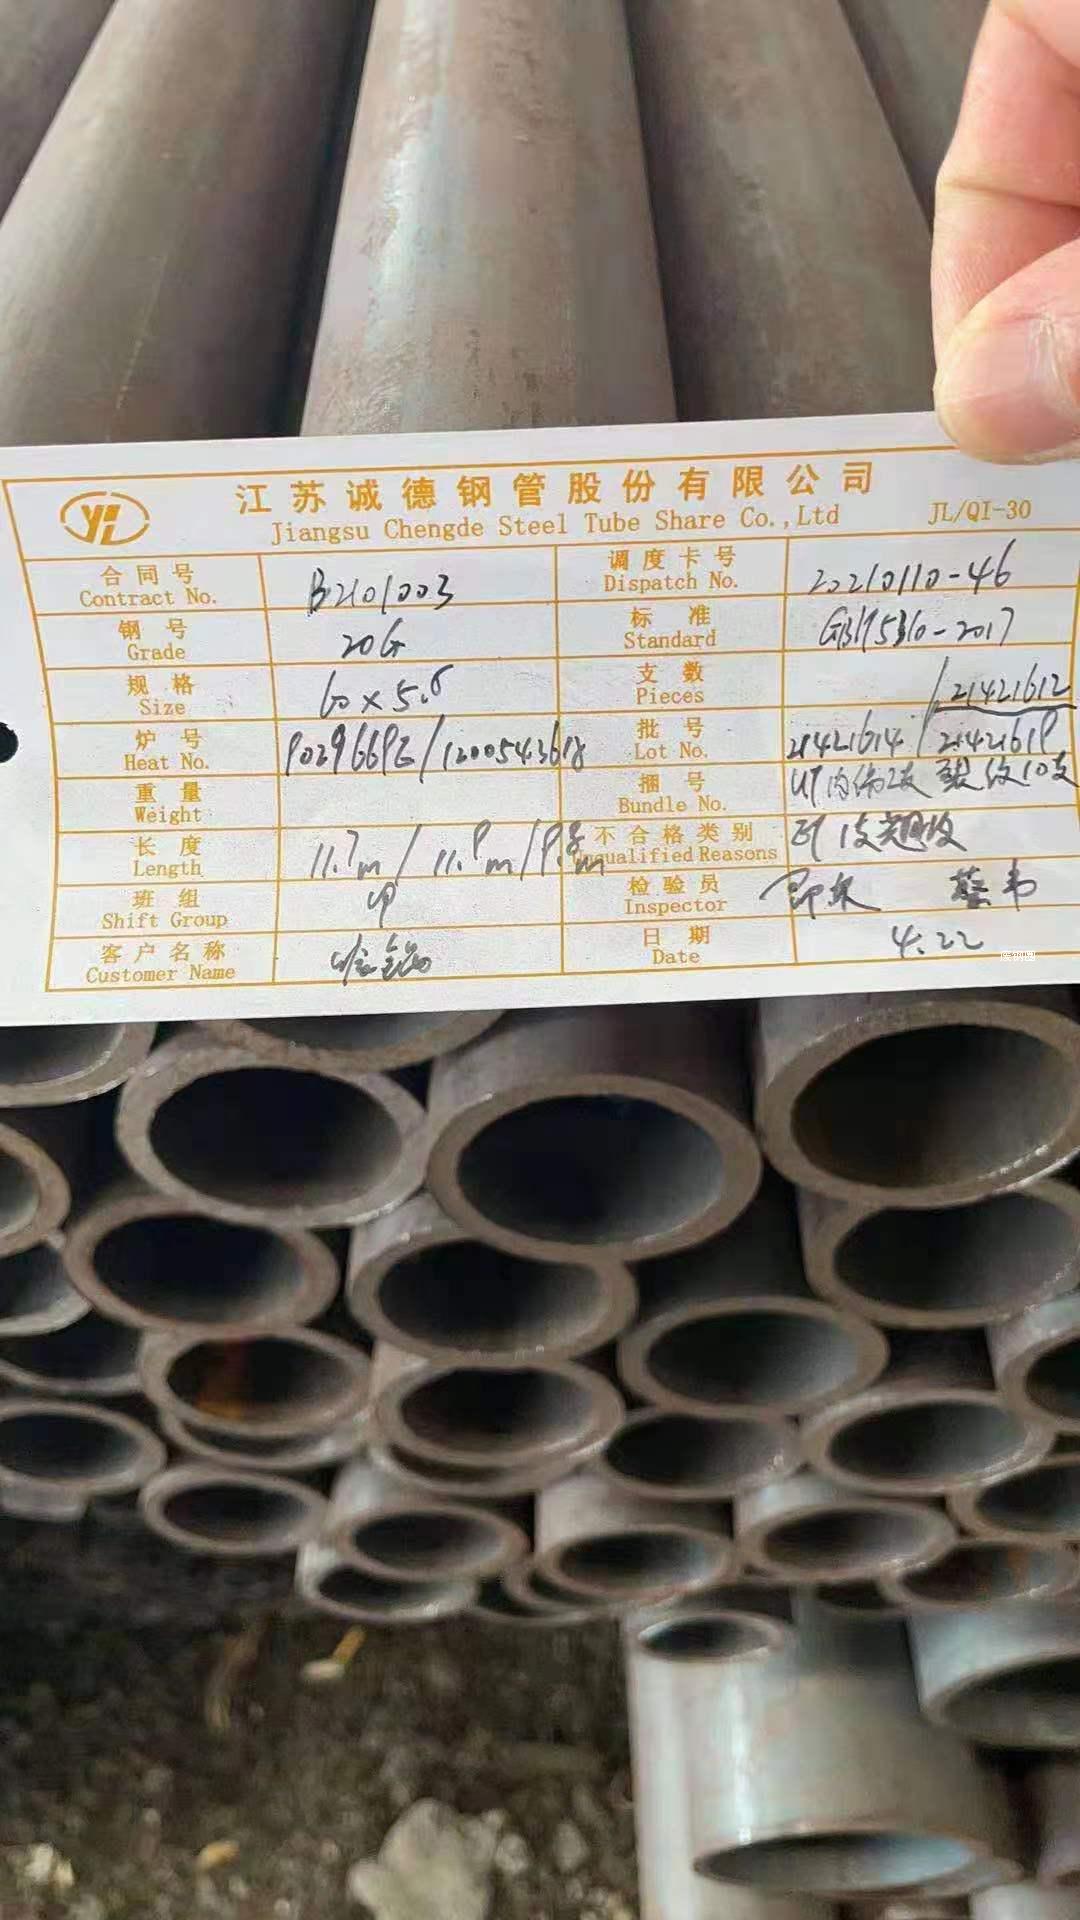 江苏诚德钢管股份有限公司
Jiangsu Chengde Steel Tube Share Co.,Ltd JL/QI-30
合同号 Contract No. B2101003 调度卡号 Dispatch No. 20210110-46
钢号 Grade 20G 标准 Standard GB/T5310-2017
规格 Size 60×5.6 支数 Pieces /21421612
炉号 Heat No. /12005436 批号 Lot No. 21421614 / 2142161P
重量 Weight 捆号 Bundle No. UT内伤2支 裂纹10支
长度 Length 11.7m / 11.9m / 9.8m 不合格类别 qualified Reasons 1支
班组 Shift Group 甲 检验员 Inspector
客户名称 Customer Name 哈锅 日期 Date 4.22